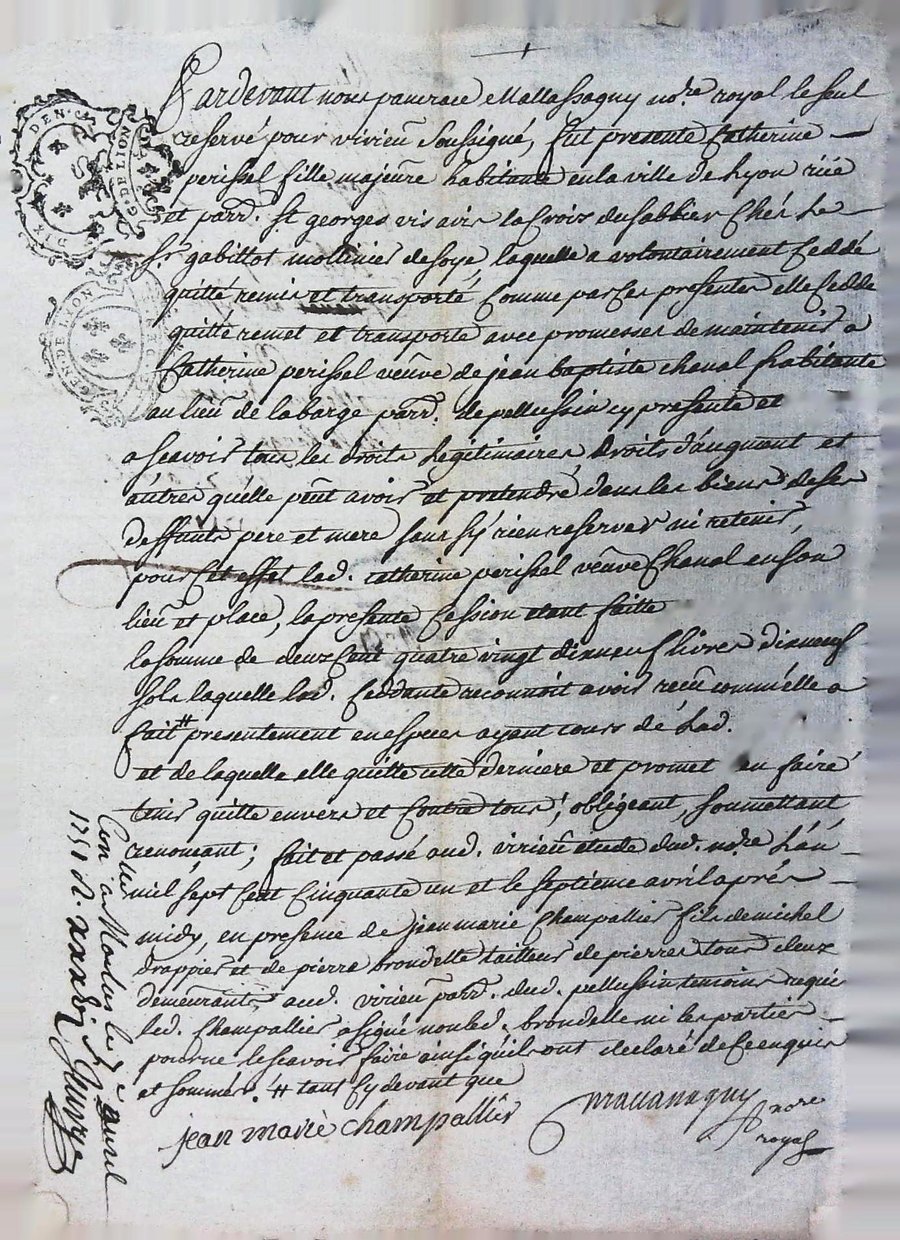 DEN.
DIX
G. DE LION
GEN. DE LION
Pardevant nous pancrace Mallassagny no.re royal le seul
reservé pour virieu soussigné, fut presente Catherine
perissel fille majeure habitante en la ville de Lyon rüe
et parr. St georges vis avis la Croix du sabbier Chés le
Sr gabillot moulinier de soye, laquelle a volontairement Ceddé
quitté remis et transporté Comme par Ces presentes elle Cedde
quitte remet et transporte avec promesses de maintenir a
Catherine perissel veuve de jean baptiste chaval habitante
au lieu de la barge parr. de pellussin cy presente et
a scavoir tous les droits Legitimaires Droits d'augment et
autres qu'elle peut avoir et pretendre dans les biens de ses
deffunts pere et mere sans s'y rien reserver ni retenir,
pour Cet effet lad. catherine perissel veuve Chaval en son
lieu et place, la presente Cession etant faitte
la somme de deux Cent quatre vingt dixneuf livres dixneuf
sols laquelle lad. Ceddante reconnoit avoir recu comm'elle a
fait # presentement en especes ayant cours de Lad.
et de laquelle elle quitte cette derniere et promet en faire
tenir quitte envers et Contre tous; obligeant, soumettant
renonçant; fait et passé aud. virieu etude dud. no.re L'an
mil sept Cent Cinquante un et le septieme avril aprés
midy, en presence de jean marie Champallier fils de michel
drappier et de pierre brondelle tailleur de pierres tous deux
demeurants aud. virieu parr. dud. pellussin temoins requis
led. Champallier a signé non led. brondelle ni les parties
pour ne le scavoir faire ainsi qu'ils ont declaré de Ce enquis
et sommés. # tant Cy devant que
jean marie champallier
Mallassagny no.re
royal
Con.lé a Maclas le avril
1751 R.